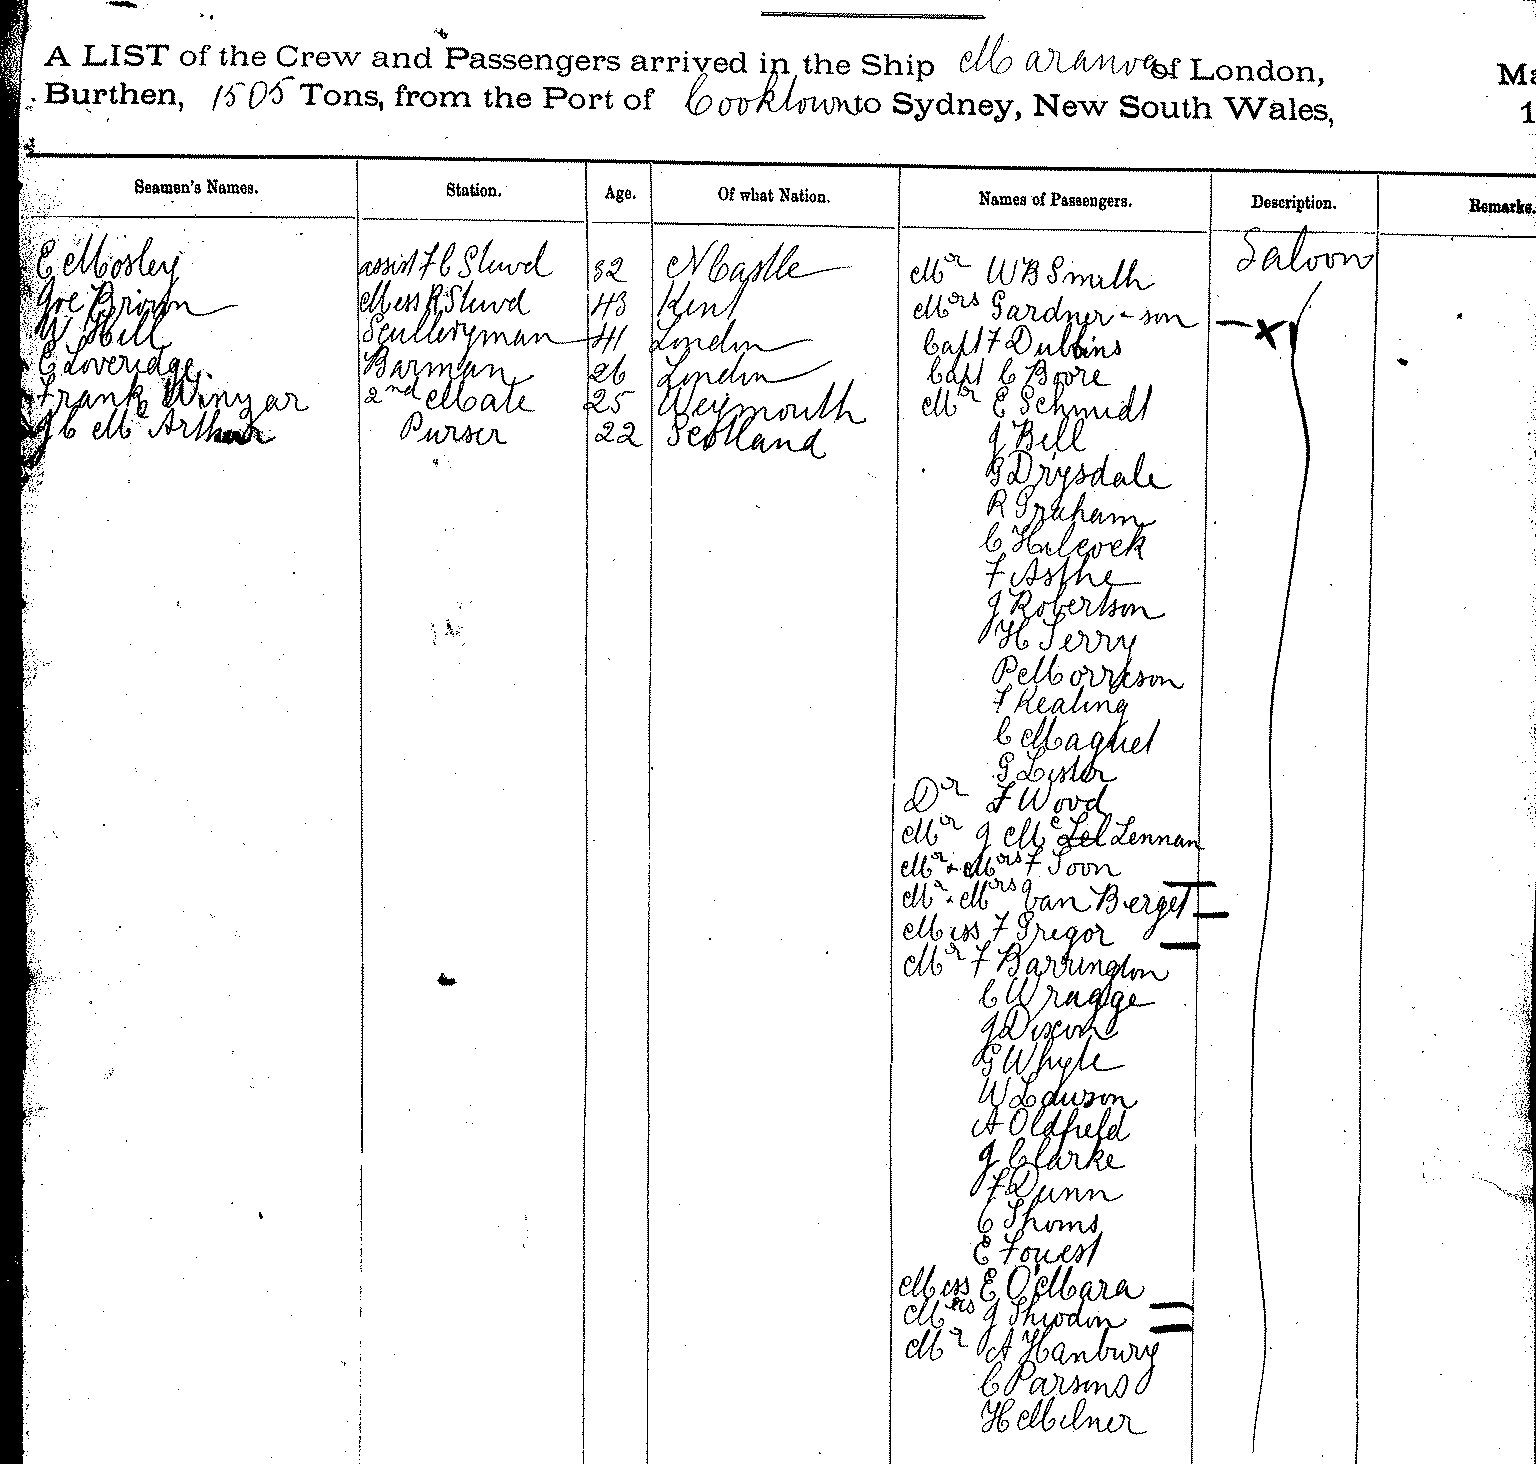 A LIST of the Crew and Passengers arrived in the Ship Maranoa of London,
Burthen, 1505 Tons, from the Port of Cooktown to Sydney, New South Wales,
Seamen's Names. Station. Age. Of what Nation. Names of Passengers. Description. Remarks.
E Mosley assist F C Stewd 32 N Castle Mr W B Smith Saloon
Joe Brown Mess R Stewd 43 Kent Mrs Gardner - son
W Hill Sculleryman 41 London Capt F Dubbins
C Loveridge Barman 26 London Capt C Boore
Frank Winzar 2nd Mate 25 Weymouth Mr E Schmidt
J C Mc Arthur Purser 22 Scotland J Bell
G Drysdale
R Graham
C Hilcock
F Asthe
J Robertson
H Terry
P Morrison
F Keating
C Maguet
G Lister
Dr F Wood
Mr J Mc Lel Lennan
Mr & Mrs F Toon
Mr & Mrs J van Berget
Miss F Gregor
Mr F Barrington
C Wragge
J Dixon
G Whyte
W Lawson
A Oldfield
J Clarke
F Dunn
C Thoms
E Fouest
Miss E O'Mara
Mrs J
Mr A Hanbury
C Parsons
H Milner